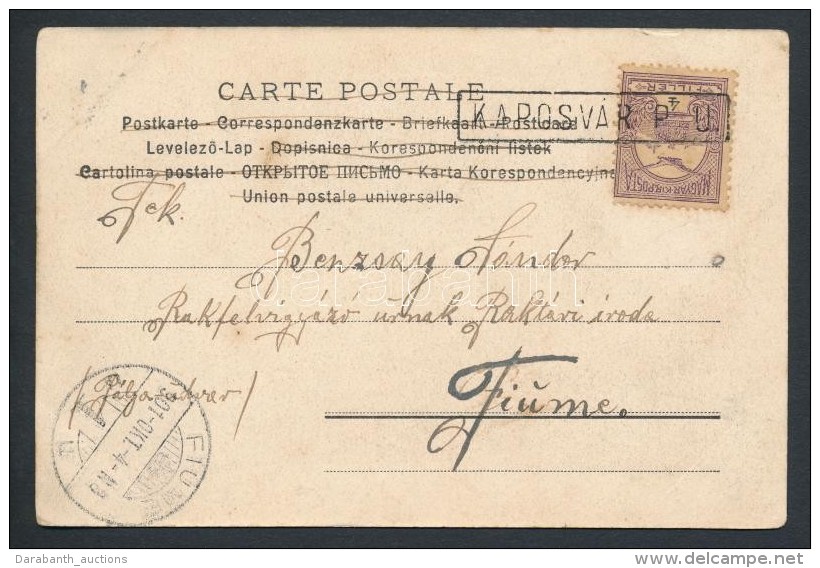 CARTE POSTALE
KAPOSVÁR P. U.
4
FILLER
MAGYAR KIR. POSTA
Postkarte - Correspondenzkarte - Briefkaart - Postcard
Levelező-Lap - Dopisnica - Korespondenční lístek
Cartolina postale - ОТКРЫТОЕ ПИСЬМО - Karta Korespondencyjna
Union postale universelle.
Tek.
Benzsay Sándor
Rakfelvigyázó úrnak Raktári iroda
Fiume.
/Pályaudvar/
FIUME
901-OKT.-4-N3
darabanth
Darabanth_auctions
delcampe.net